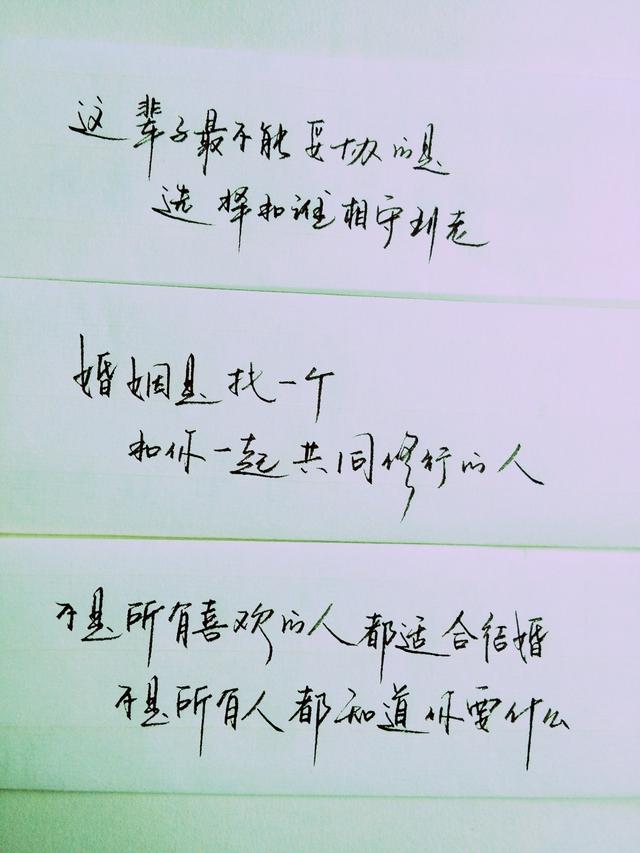 这辈子最不能妥协的是
选择和谁相守到老
婚姻是找一个
和你一起共同修行的人
不是所有喜欢的人都适合结婚
不是所有人都知道你要什么